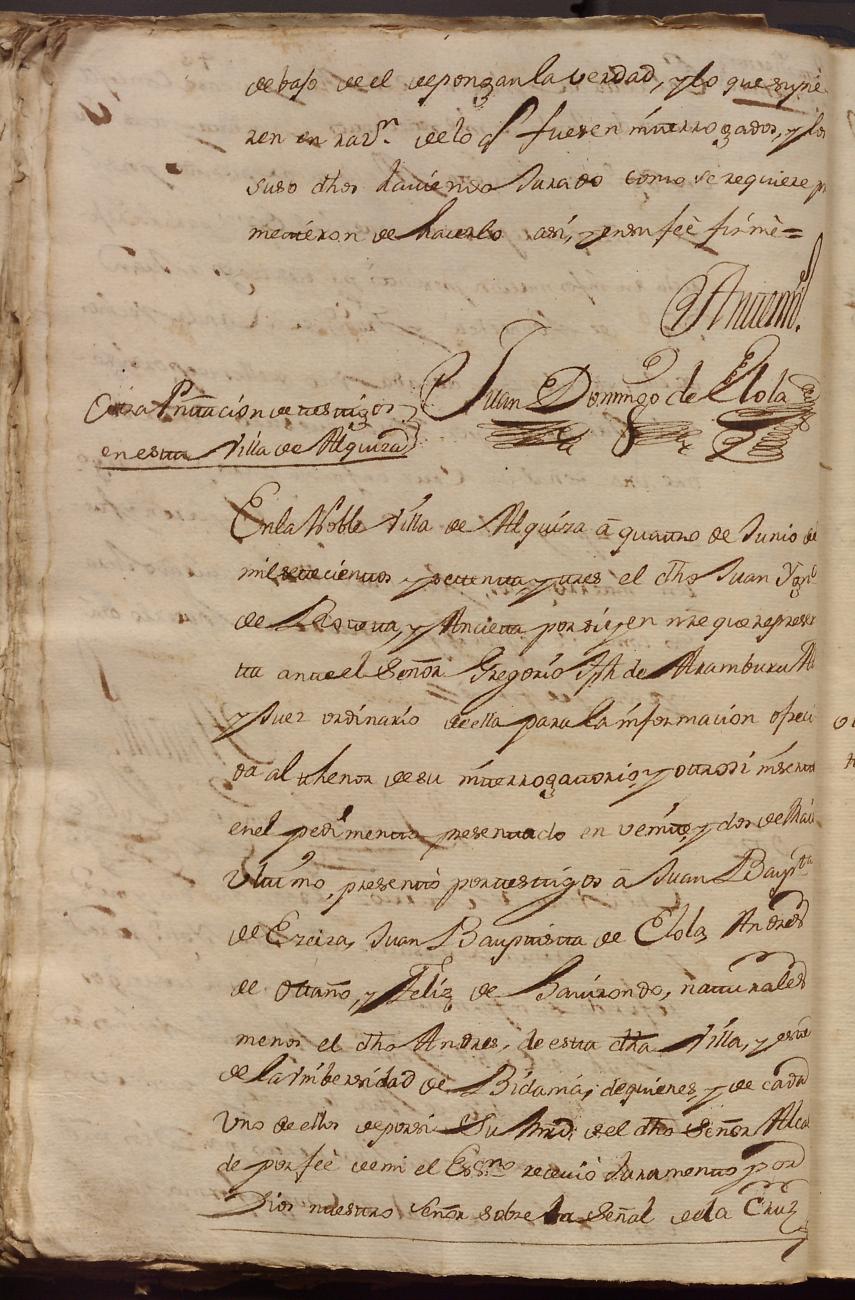 debajo de el depongan la verdad, y lo que supie
ren en razn. de lo q fueren interrogados, y los
suso dhos haviendo Jurado como se requiere pr
metieron de hacerlo asi, y en su feè firmè=
Antemi.
Juan Domingo de Elola
Otra Pntacion de testigos
en esta Villa de Alquiza
En la Noble Villa de Alquiza à quatro de Junio de
mil setecientos y setenta y tres el dho Juan Ygno
de y Ancieta por si, y en nre que represen
ta ante el Señor Gregorio Jph de Aramburu Al
y Juez ordinario de ella para la informacion ofreci
da al thenor de su interrogatorio, y otrosi inserto
en el pedimento presentado en veinte, y dos de Maio
Ultimo, presentò por testigos à Juan Bapta
de Ereiza, Juan Bauptista de Elola, Andres
de Ottaño, y Feliz de Lavirondo, naturales
menos el dho Andres, de esta dha Villa, y este
de la Vnibersidad de Bidania, de quienes, y de cada
Uno de ellos de por si Su Mrd. del dho Señor Alcal
de por feè de mi el Essno reciviò Juramento por
Dios nuestro Señor sobre la Señal de la Cruz